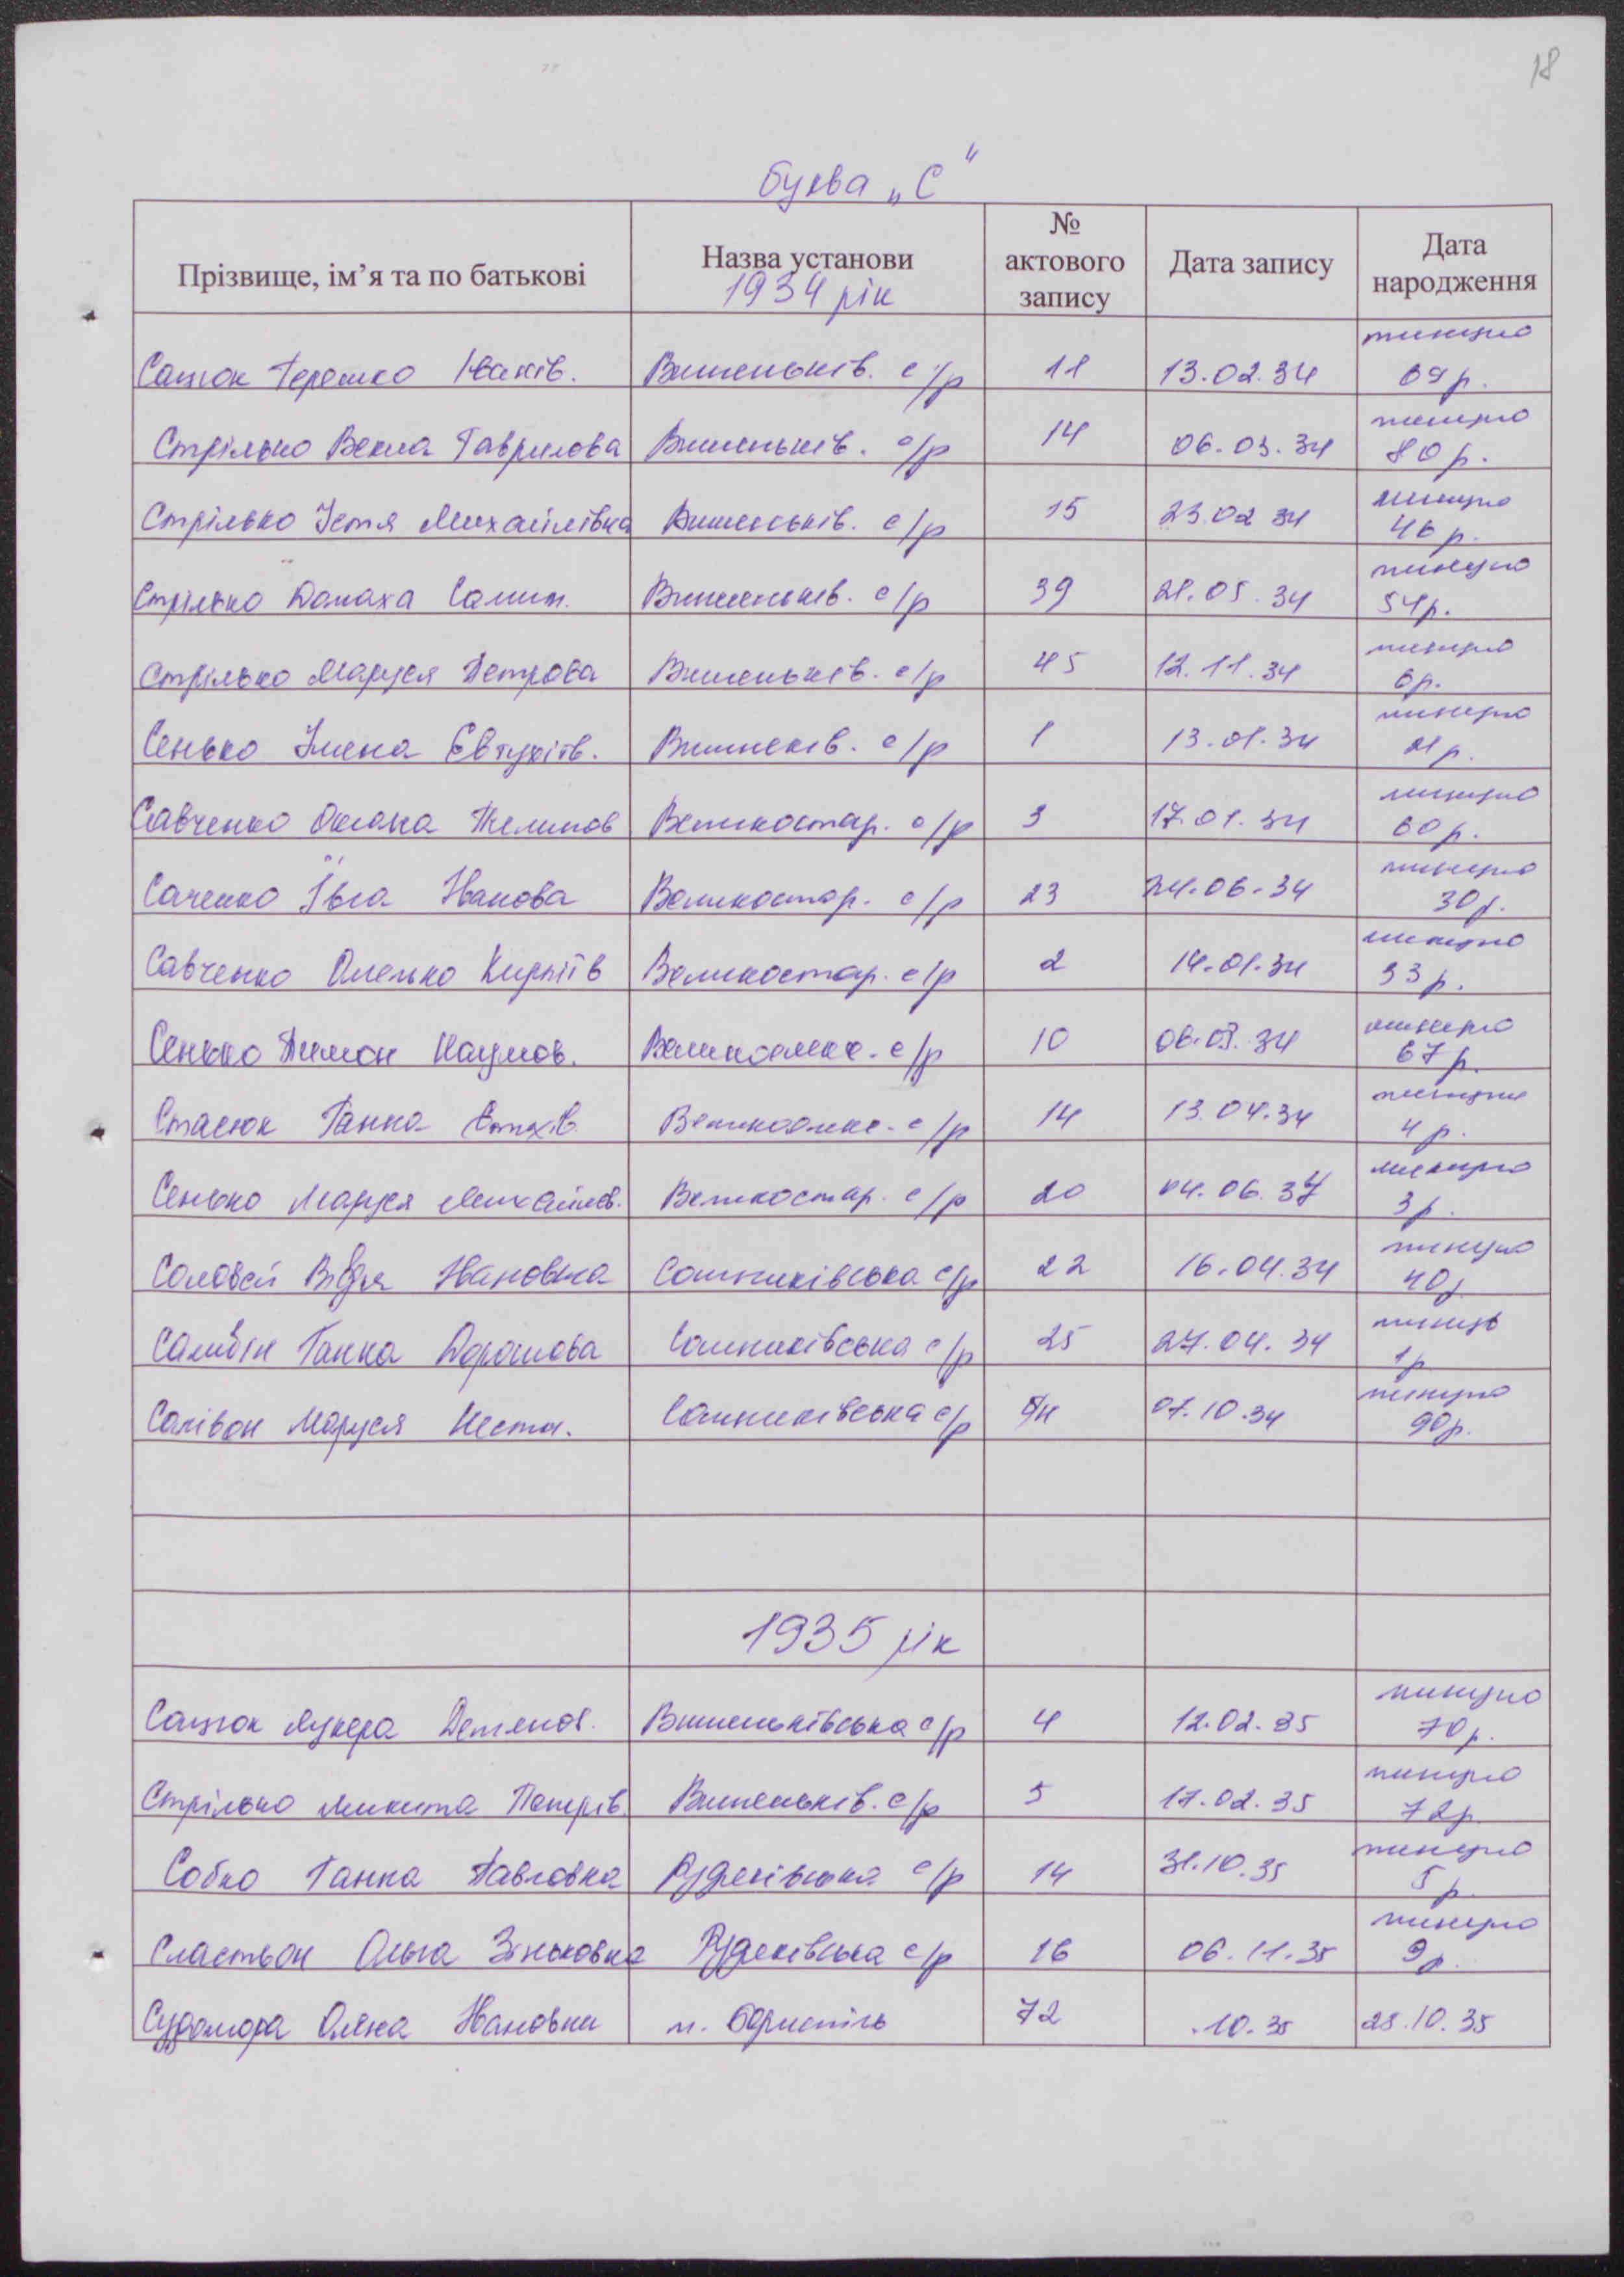 18
буква „С"
Прізвище, ім'я та по батькові | Назва установи 1934 рік | № актового запису | Дата запису | Дата народження
Сацюк Терешко Іванів. | Вишеньків. с/р | 11 | 13.02.34 | минуло 69 р.
Стрілько Векла Гаврилова | Вишеньків. с/р | 14 | 06.03.34 | минуло 80 р.
Стрілько Устя Михайлівна | Вишеньків. с/р | 15 | 23.02 34 | минуло 46 р.
Стрілько Домаха Самит. | Вишеньків. с/р | 39 | 21.05.34 | минуло 54р.
Стрілько Маруся Петрова | Вишеньків. с/р | 45 | 12.11.34 | минуло 6р.
Сенько Уляна Євтухіів. | Вишнеків. с/р | 1 | 13.01.34 | минуло 21 р.
Савченко Оксана Пилипов | Великостар. с/р | 3 | 17.01.34 | минуло 60 р.
Саченко Івга Іванова | Великостар. с/р | 23 | 24.06.34 | минуло 30р.
Савченко Олелько Кирліїв | Великостар. с/р | 2 | 14.01.34 | минуло 33 р.
Сенько Тимон Наумов. | Великоолекс. с/р | 10 | 06.03.34 | минуло 67 р.
Стасюк Ганна | Великоолекс. с/р | 14 | 13.04.34 | минуло 4 р.
Сенько Маруся Михайлов. | Великостар. с/р | 20 | 04.06.34 | минуло 3 р.
Соловей Іванова | Сошниківська с/р | 22 | 16.04.34 | минуло 40р
Салівін Ганна Дорошова | Сошниківська с/р | 25 | 27.04.34 | минуло 1р
Салівон Маруся Нест. | Сошниківська с/р | б/н | 07.10.34 | минуло 90р.
1935 рік
Сацюк Лукера Демянов. | Вишеньківська с/р | 4 | 12.02.35 | минуло 70 р.
Стрілько Микита Петрів. | Вишеньків. с/р | 5 | 17.02.35 | минуло 72р
Собко Ганна Павловна | Рудяківська с/р | 14 | 31.10.35 | минуло 5 р
Сластьон Ольга Зіньковна | Рудяківська с/р | 16 | 06.11.35 | минуло 9р.
Судомора Олена Івановна | м. Бориспіль | 72 | .10.35 | 28.10.35